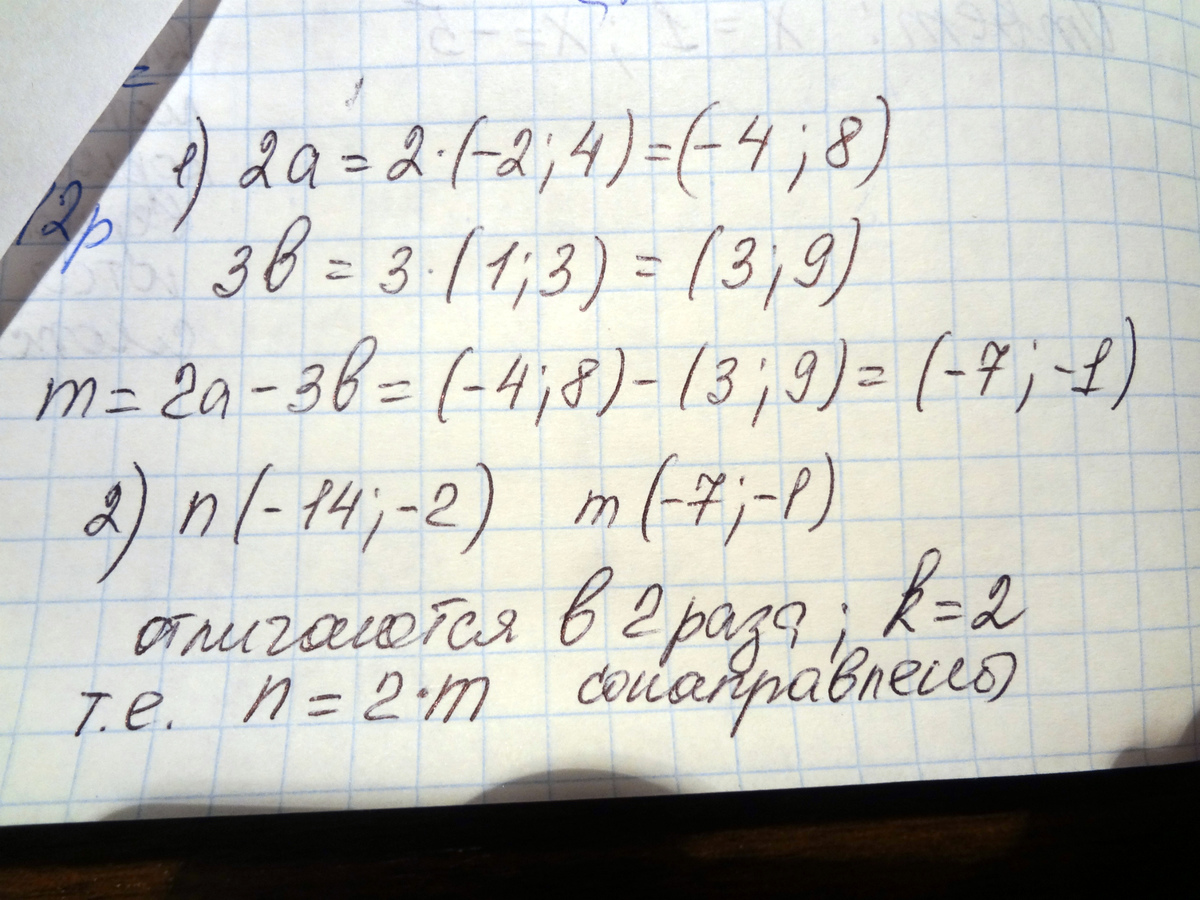 1) 2a = 2·(-2; 4) = (-4; 8)
(2р
3b = 3·(1; 3) = (3; 9)
m = 2a - 3b = (-4; 8) - (3; 9) = (-7; -1)
2) n (-14; -2) m (-7; -1)
отличаются в 2 раза; k = 2
т.е. n = 2·m сонаправлены